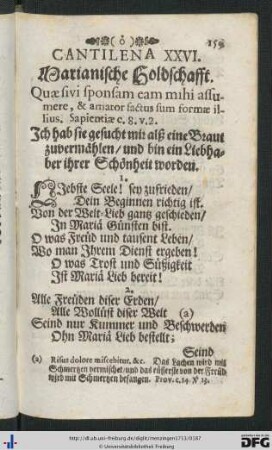 ( ô ) 159
CANTILENA XXVI.
Marianische Holdschafft.
Quæsivi sponsam eam mihi assu-
mere, & amator factus sum formæ il-
lius. Sapientiæ c. 8. v. 2.
Ich hab sie gesucht mir alß eine Braut
zuvermählen/ und bin ein Liebha-
ber ihrer Schönheit worden.
1.
LIebste Seele! sey zufrieden/
Dein Beginnen richtig ist.
Von der Welt-Lieb gantz geschieden/
In Mariâ Günsten bist.
O was Freüd und tausent Leben/
Wo man Ihrem Dienst ergeben!
O was Trost und Süßigkeit
Ist Mariä Lieb bereit!
2.
Alle Freüden diser Erden/
Alle Wollüst diser Welt (a)
Seind nur Kummer und Beschwerden
Ohn Mariä Lieb bestellt;
Seind
(a) Risus dolore miscebitur, &c. Das Lachen wird mit
Schmertzen vermischet/ und das eüsserste von der Freüd
wird mit Schmertzen befangen. Prov. c. 14. ℣ 13.
http://dfl.ub.uni-freiburg.de/diglit/menzingeri1713/0167
© Universitätsbibliothek Freiburg
DFG